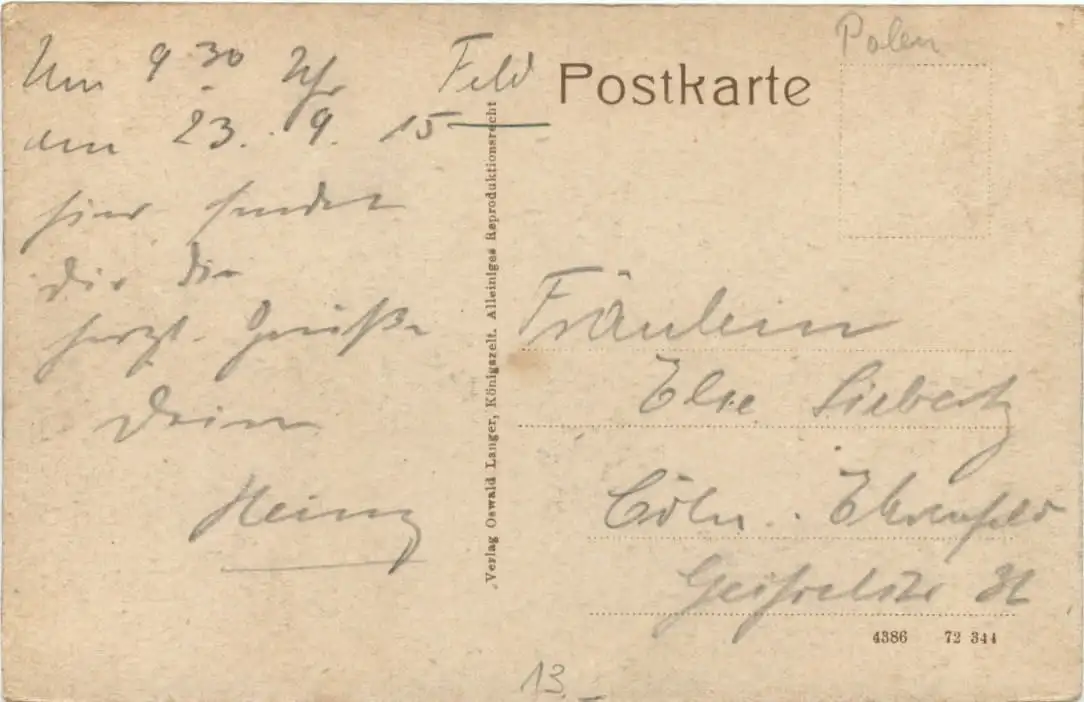 Um 9.30 Uhr Feld
den 23. 9. 15
hier sendet
dir die
herzl. Grüße
Dein
Heinz
Verlag Oswald Langer, Königszelt. Alleiniges Reproduktionsrecht
Postkarte
Polen
Fräulein
Else Siebertz
Cöln - Ehrenfeld
4386 72 344
13.